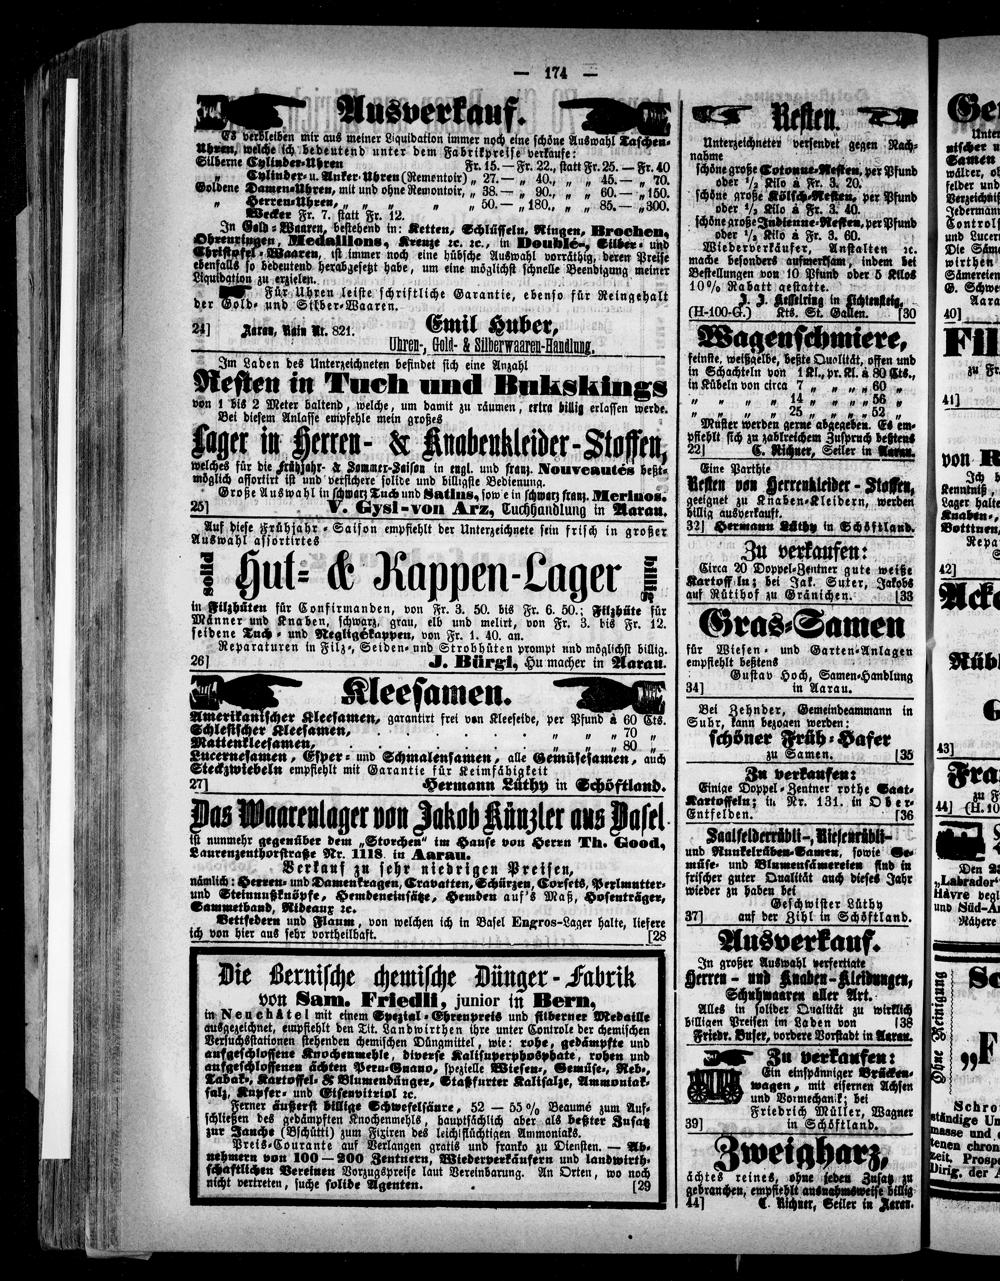 — 174 —
Ausverkauf.
Es verbleiben mir aus meiner Liquidation immer noch eine schöne Auswahl Taschen-
Uhren, welche ich bedeutend unter dem Fabrikpreise verkaufe:
Silberne Cylinder-Uhren Fr. 15. — Fr. 22., statt Fr. 25. — Fr. 40
„ Cylinder- u. Anker-Uhren (Remontoir) „ 27. — „ 40., „ „ 45. — „ 70.
Goldene Damen-Uhren, mit und ohne Remontoir, „ 38. — „ 90., „ „ 60. — „ 150.
„ Herren-Uhren, „ „ „ „ „ 50. — „ 180., „ „ 85. — „ 300.
Wecker Fr. 7. statt Fr. 12.
In Gold-Waaren, bestehend in: Ketten, Schlüsseln, Ringen, Brochen,
Ohrenringen, Medaillons, Kreuze ꝛc. ꝛc., in Doublé-, Silber- und
Christofel-Waaren, ist immer noch eine hübsche Auswahl vorräthig, deren Preise
ebenfalls so bedeutend herabgesetzt habe, um eine möglichst schnelle Beendigung meiner
Liquidation zu erzielen.
Für Uhren leiste schriftliche Garantie, ebenso für Reingehalt
der Gold- und Silber-Waaren.
24] Aarau, Rain Nr. 821. Emil Huber,
Uhren-, Gold- & Silberwaaren-Handlung.
Im Laden des Unterzeichneten befindet sich eine Anzahl
Resten in Tuch und Bukskings
von 1 bis 2 Meter haltend, welche, um damit zu räumen, extra billig erlassen werde.
Bei diesem Anlasse empfehle mein großes
Lager in Herren- & Knabenkleider-Stoffen,
welches für die Frühjahr- & Sommer-Saison in engl. und franz. Nouveautés best-
möglich assortirt ist und versichere solide und billigste Bedienung.
Große Auswahl in schwarz Tuch und Satins, sowie in schwarz franz. Merinos.
25] V. Gysi-von Arz, Tuchhandlung in Aarau.
Auf diese Frühjahr-Saison empfiehlt der Unterzeichnete sein frisch in großer
Auswahl assortirtes
solid Hut- & Kappen-Lager billig
in Filzhüten für Confirmanden, von Fr. 3. 50. bis Fr. 6. 50.; Filzhüte für
Männer und Knaben, schwarz, grau, elb und melirt, von Fr. 3. bis Fr. 12.
seidene Tuch- und Negligékappen, von Fr. 1. 40. an.
Reparaturen in Filz-, Seiden- und Strohhüten prompt und möglichst billig.
26] J. Bürgi, Hu macher in Aarau.
Kleesamen.
Amerikanischer Kleesamen, garantirt frei von Kleeseide, per Pfund à 60 Cts.
Schlesischer Kleesamen, . . . . . „ „ „ 70 „
Mattenkleesamen, . . . . . . „ „ „ 80 „
Lucernesamen, Esper- und Schmalensamen, alle Gemüsesamen, auch
Steckzwiebeln empfiehlt mit Garantie für Keimfähigkeit
27] Hermann Lüthy in Schöftland.
Das Waarenlager von Jakob Künzler aus Basel
ist nunmehr gegenüber dem „Storchen“ im Hause von Herrn Th. Good,
Laurenzenthorstraße Nr. 1118 in Aarau.
Verkauf zu sehr niedrigen Preisen,
nämlich: Herren- und Damenkragen, Cravatten, Schürzen, Corsets, Perlmutter-
und Steinnußknöpfe, Hemdeneinsätze, Hemden auf's Maß, Hosenträger,
Sammetband, Rideaux ꝛc.
Bettfedern und Flaum, von welchen ich in Basel Engros-Lager halte, liefere
ich von hier aus sehr vortheilhaft. [28
Die Bernische chemische Dünger-Fabrik
von Sam. Friedli, junior in Bern,
in Neuchâtel mit einem Spezial-Ehrenpreis und silberner Medaille
ausgezeichnet, empfiehlt den Tit. Landwirthen ihre unter Controle der chemischen
Versuchsstationen stehenden chemischen Düngmittel, wie: rohe, gedämpfte und
aufgeschlossene Knochenmehle, diverse Kalisuperphosphate, rohen und
aufgeschlossenen ächten Peru-Guano, spezielle Wiesen-, Gemüse-, Reb-,
Tabak-, Kartoffel- & Blumendünger, Staßfurter Kalisalze, Ammoniak-
salz, Kupfer- und Eisenvitriol ꝛc.
Ferner äußerst billige Schwefelsäure, 52 — 55% Beaumé zum Auf-
schließen des gedämpften Knochenmehls, hauptsächlich aber als bester Zusatz
zur Jauche (Bschütti) zum Fixiren des leichtflüchtigen Ammoniaks.
Preis-Courante auf Verlangen gratis und franko zu Diensten. — Ab-
nehmern von 100 — 200 Zentnern, Wiederverkäufern und landwirth-
schaftlichen Vereinen Vorzugspreise laut Vereinbarung. An Orten, wo noch
nicht vertreten, suche solide Agenten. [29
Resten.
Unterzeichneter versendet gegen Nach-
nahme
schöne große Cotonne-Resten, per Pfund
oder ½ Kilo à Fr. 3. 20.
schöne große Kölsch-Resten, per Pfund
oder ½ Kilo à Fr. 3. 40.
schöne große Indienne-Resten, per Pfund
oder ½ Kilo à Fr. 3. 60.
Wiederverkäufer, Anstalten ꝛc.
mache besonders aufmerksam, indem bei
Bestellungen von 10 Pfund oder 5 Kilos
10% Rabatt gestatte.
J. J. Kesselring in Lichtensteig,
(H-100-G.) Kts. St. Gallen. [30
Wagenschmiere,
feinste, weißgelbe, beste Qualität, offen und
in Schachteln von 1 Kl., pr. Kl. à 80 Cts.,
in Kübeln von circa 7 „ „ „ „ 60 „
„ „ „ „ 14 „ „ „ „ 56 „
„ „ „ „ 25 „ „ „ „ 52 „
Muster werden gerne abgegeben. Es em-
pfiehlt sich zu zahlreichem Zuspruch bestens
22] C. Richner, Seiler in Aarau.
Eine Parthie
Resten von Herrenkleider-Stoffen,
geeignet zu Knaben-Kleidern, werden
billig ausverkauft.
32] Hermann Lüthy in Schöftland.
Zu verkaufen:
Circa 20 Doppel-Zentner gute weiße
Kartoff ln; bei Jak. Suter, Jakobs
auf Rütihof zu Gränichen. [33
Gras-Samen
für Wiesen- und Garten-Anlagen
empfiehlt bestens
Gustav Hoch, Samen-Handlung
34] in Aarau.
Bei Zehnder, Gemeindeammann in
Suhr, kann bezogen werden:
schöner Früh-Hafer
zu Samen. [35
Zu verkaufen:
Einige Doppel-Zentner rothe Saat-
Kartoffeln; in Nr. 131. in Ober-
Entfelden. [36
Saalfelderrübli-, Riesenrübli-
und Runkelrüben-Samen, sowie Ge-
müse- und Blumensämereien sind in
frischer guter Qualität auch dieses Jahr
wieder zu haben bei
Geschwister Lüthy
37] auf der Zihl in Schöftland.
Ausverkauf.
In großer Auswahl verfertigte
Herren- und Knaben-Kleidungen,
Schuhwaaren aller Art.
Alles in solider Qualität zu wirklich
billigen Preisen im Laden von [38
Friedr. Buser, vordere Vorstadt in Aarau.
Zu verkaufen:
Ein einspänniger Brücken-
wagen, mit eisernen Achsen
und Vormechanik; bei
Friedrich Müller, Wagner
39] in Schöftland.
Zweigharz,
ächtes reines, ohne jeden Zusatz zu
gebrauchen, empfiehlt ausnahmsweise billig
44] C. Richner, Seiler in Aarau.
40]
41]
von
42]
43]
44] (H. 10
„Labrador“
Hâvre
und Süd-A
Ohne Reinigung